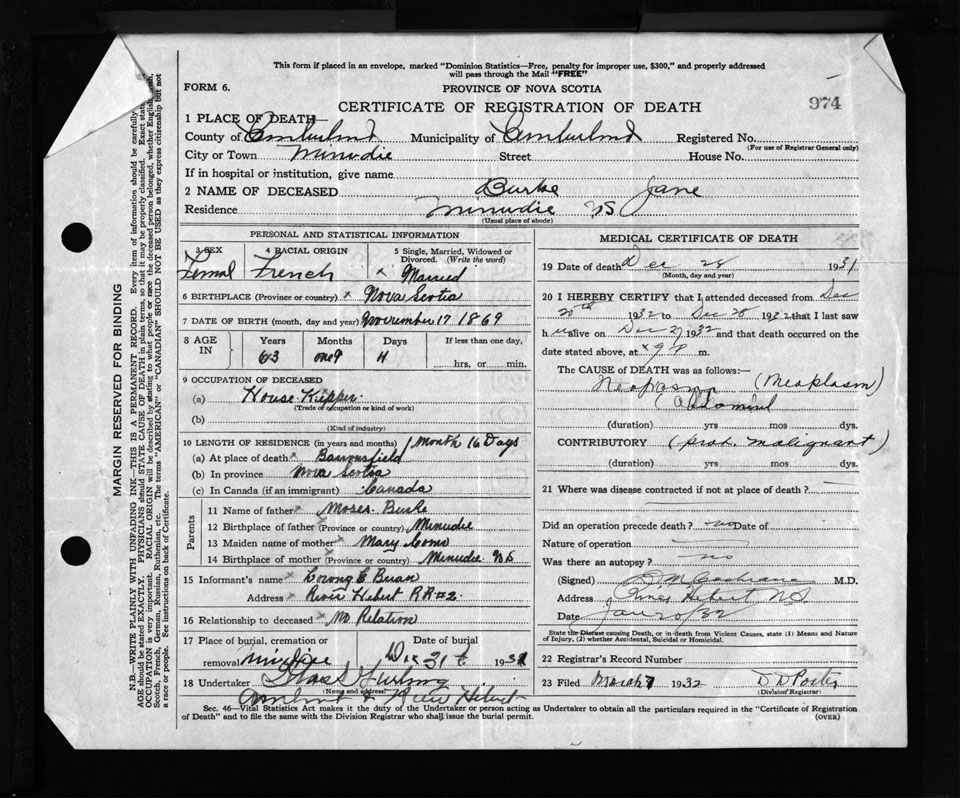 This form if placed in an envelope, marked "Dominion Statistics—Free, penalty for improper use, $300," and properly addressed
will pass through the Mail "FREE"
FORM 6.
PROVINCE OF NOVA SCOTIA
974
CERTIFICATE OF REGISTRATION OF DEATH
1 PLACE OF DEATH—
County of Cumberland Municipality of Cumberland Registered No.
(For use of Registrar General only)
City or Town Minudie Street House No.
If in hospital or institution, give name
2 NAME OF DECEASED Burke Jane
Residence Minudie NS
(Usual place of abode)
PERSONAL AND STATISTICAL INFORMATION
3 SEX 4 RACIAL ORIGIN 5 Single, Married, Widowed or
Divorced. (Write the word)
Femal French x Married
6 BIRTHPLACE (Province or country) x Nova Scotia
7 DATE OF BIRTH (month, day and year) November 17 1869
8 AGE IN Years Months Days If less than one day,
63 one 9 11 hrs. or min.
9 OCCUPATION OF DECEASED
(a) House Kipper
(Trade or occupation or kind of work)
(b)
(Kind of industry)
10 LENGTH OF RESIDENCE (in years and months) 1 Month 16 Days
(a) At place of death x Barronsfield
(b) In province Nova Scotia
(c) In Canada (if an immigrant) Canada
Parents
11 Name of father x Moses Burke
12 Birthplace of father x (Province or country) Minudie
13 Maiden name of mother x Mary
14 Birthplace of mother x (Province or country) Minudie NS
15 Informant's name x
Address x River Hebert RR#2.
16 Relationship to deceased x No Relation
17 Place of burial, cremation or Date of burial
removal Minudie Dec 31 t 193
18 Undertaker
(Name and address)
Amherst & River Hebert
MEDICAL CERTIFICATE OF DEATH
19 Date of death Dec 28 1931
(Month, day and year)
20 I HEREBY CERTIFY that I attended deceased from Dec
20th 1932 to Dec 28 1932 that I last saw
h er alive on Dec 27 1932 and that death occurred on the
date stated above, at x 9 P m.
The CAUSE of DEATH was as follows:—
Neoplasm (Neoplasm)
(abdominal
(duration) yrs mos dys.
CONTRIBUTORY (prob. malignant)
(duration) yrs mos dys.
21 Where was disease contracted if not at place of death?
Did an operation precede death? no Date of
Nature of operation
Was there an autopsy? no
(Signed) Cochrane M.D.
Address River Hebert N.S.
Date Jan 20/32
State the Disease causing Death, or in death from Violent Causes, state (1) Means and Nature
of Injury, (2) whether Accidental, Suicidal or Homicidal.
22 Registrar's Record Number
23 Filed March 7 1932 D D Porter
(Division Registrar)
Sec. 46—Vital Statistics Act makes it the duty of the Undertaker or person acting as Undertaker to obtain all the particulars required in the "Certificate of Registration
of Death" and to file the same with the Division Registrar who shall issue the burial permit.
(OVER)
MARGIN RESERVED FOR BINDING
N.B.—WRITE PLAINLY WITH UNFADING INK—THIS IS A PERMANENT RECORD. Every item of information should be carefully
AGE should be stated EXACTLY. PHYSICIANS should STATE CAUSE OF DEATH in plain terms, so that it may be properly classified. Exact
OCCUPATION is very important. RACIAL ORIGIN will be described by stating to what people or race the deceased person belonged, whether English,
Scotch, French, German, Russian, Ruthenian, etc. The terms "AMERICAN" or "CANADIAN" SHOULD NOT BE USED as they express citizenship but not
a race or people. See instructions on back of Certificate.